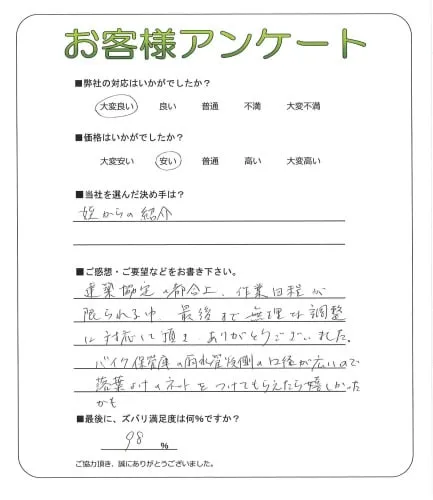 お客様アンケート
■弊社の対応はいかがでしたか?
大変良い 良い 普通 不満 大変不満
■価格はいかがでしたか?
大変安い 安い 普通 高い 大変高い
■当社を選んだ決め手は?
姪からの紹介
■ご感想・ご要望などをお書き下さい。
建築協定の都合上、作業日程が
限られる中、最後まで無理な調整
に対応して頂き ありがとうございました。
バイク保管庫の雨水管後側の口径が広いので
落葉よけのネットをつけてもらえたら嬉しかった
かも
■最後に、ズバリ満足度は何%ですか?
98 %
ご協力頂き,誠にありがとうございました。